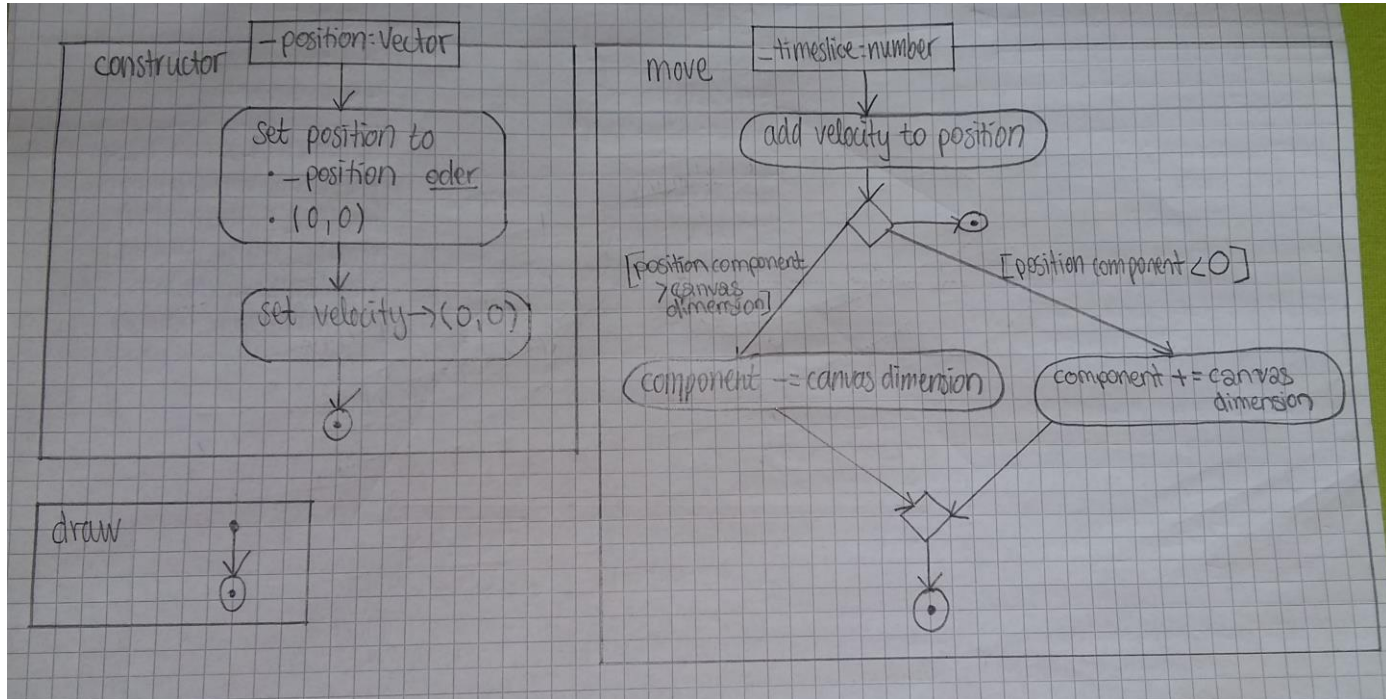 constructor
-position:Vector
set position to
• -position oder
• (0,0)
set velocity→(0,0)
draw
move
-timeslice:number
add velocity to position
[position component
>canvas
dimension]
[position component <0]
component -= canvas dimension
component += canvas
dimension